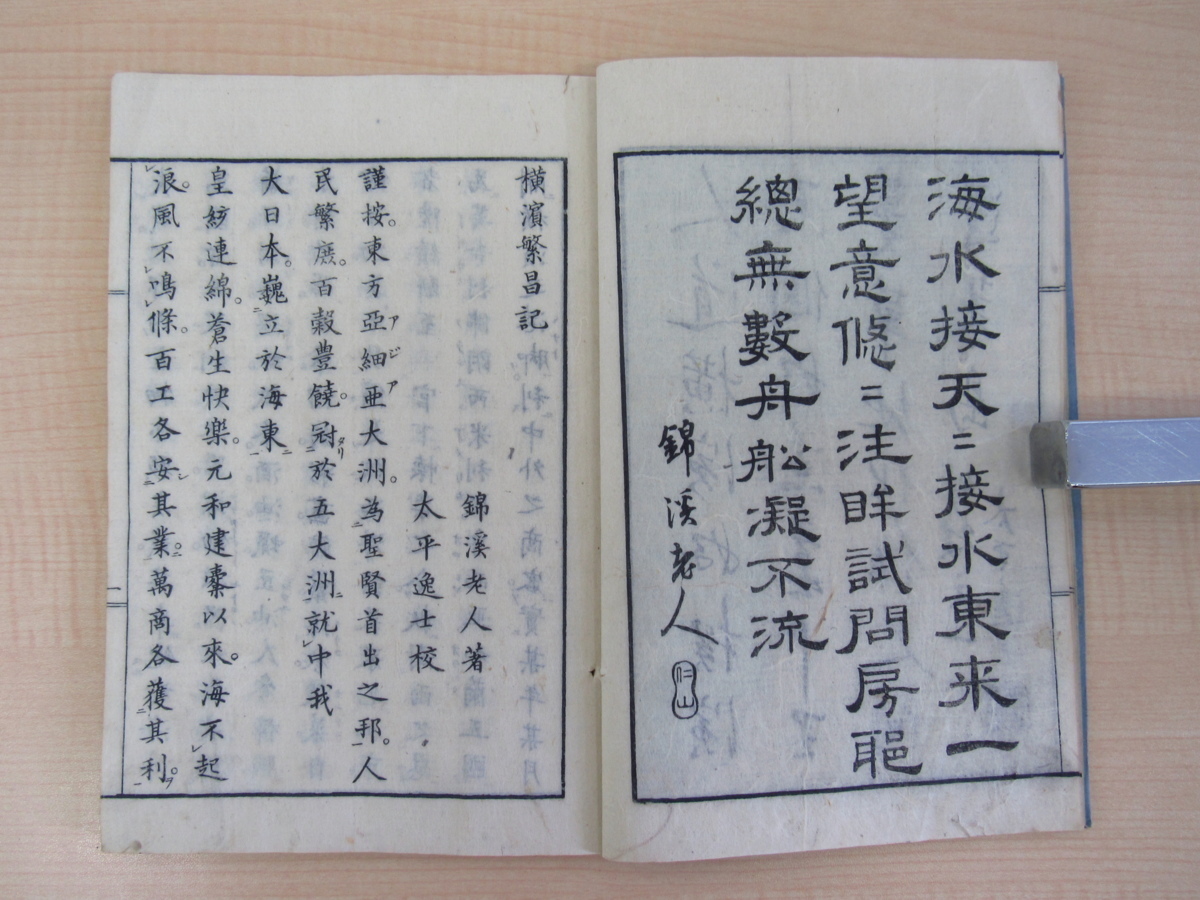 海水接天〻接水東来一
望意悠〻注眸試問房𦕈
總無數舟舩凝不流
錦溪老人
横濱繁昌記
錦溪老人著
太平逸士校
謹按。東方亞細亜大洲。為聖賢首出之邦。人
民繁庶。百穀豊饒。冠於五大洲就中我
大日本。巍立於海東
皇紘連綿。蒼生快樂。元和建櫜以來。海不起
浪。風不鳴條。百工各安其業。萬商各獲其利。